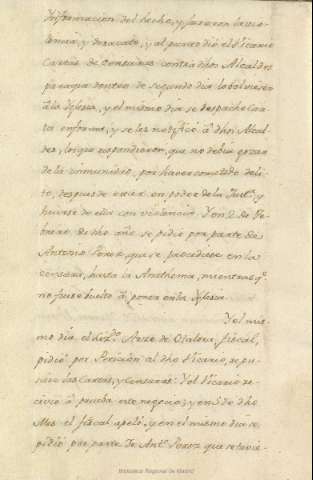 Informacion del hecho, y fueron la vio-
lencia, y desacato, y al punto dió el Vicario
Cartas de Censuras contra dhos Alcaldes
para que dentro de segundo dia lo bolviesen
á la Iglesia, y el mismo dia se despachó Car-
ta en forma, y se les notificó á dhos Alcal-
des, lo que respondieron, que no debia gozar
de la inmunidad, por haver cometido deli-
to, despues de estar en poder de la Just.ª y
huirse de ella con violencia. Y en 2. de Fe-
brero de dho año se pidió por parte de
Antonio Perez que se procediese en las
censuras, hasta la Anathema, mientras q.e
no fuese buelto á poner en la Iglesia.
Y el mis-
mo dia el Liz.do Arze de Otalora, fiscal,
pidió por Peticion al dho Vicario, repu-
siese las Cartas, y Censuras: Y el Vicario re-
civió á prueba este negocio; y en 5 de dho
Mes el fiscal apeló, y en el mismo dia se
pidió, por parte de Ant.º Perez que se
Biblioteca Regional de Madrid